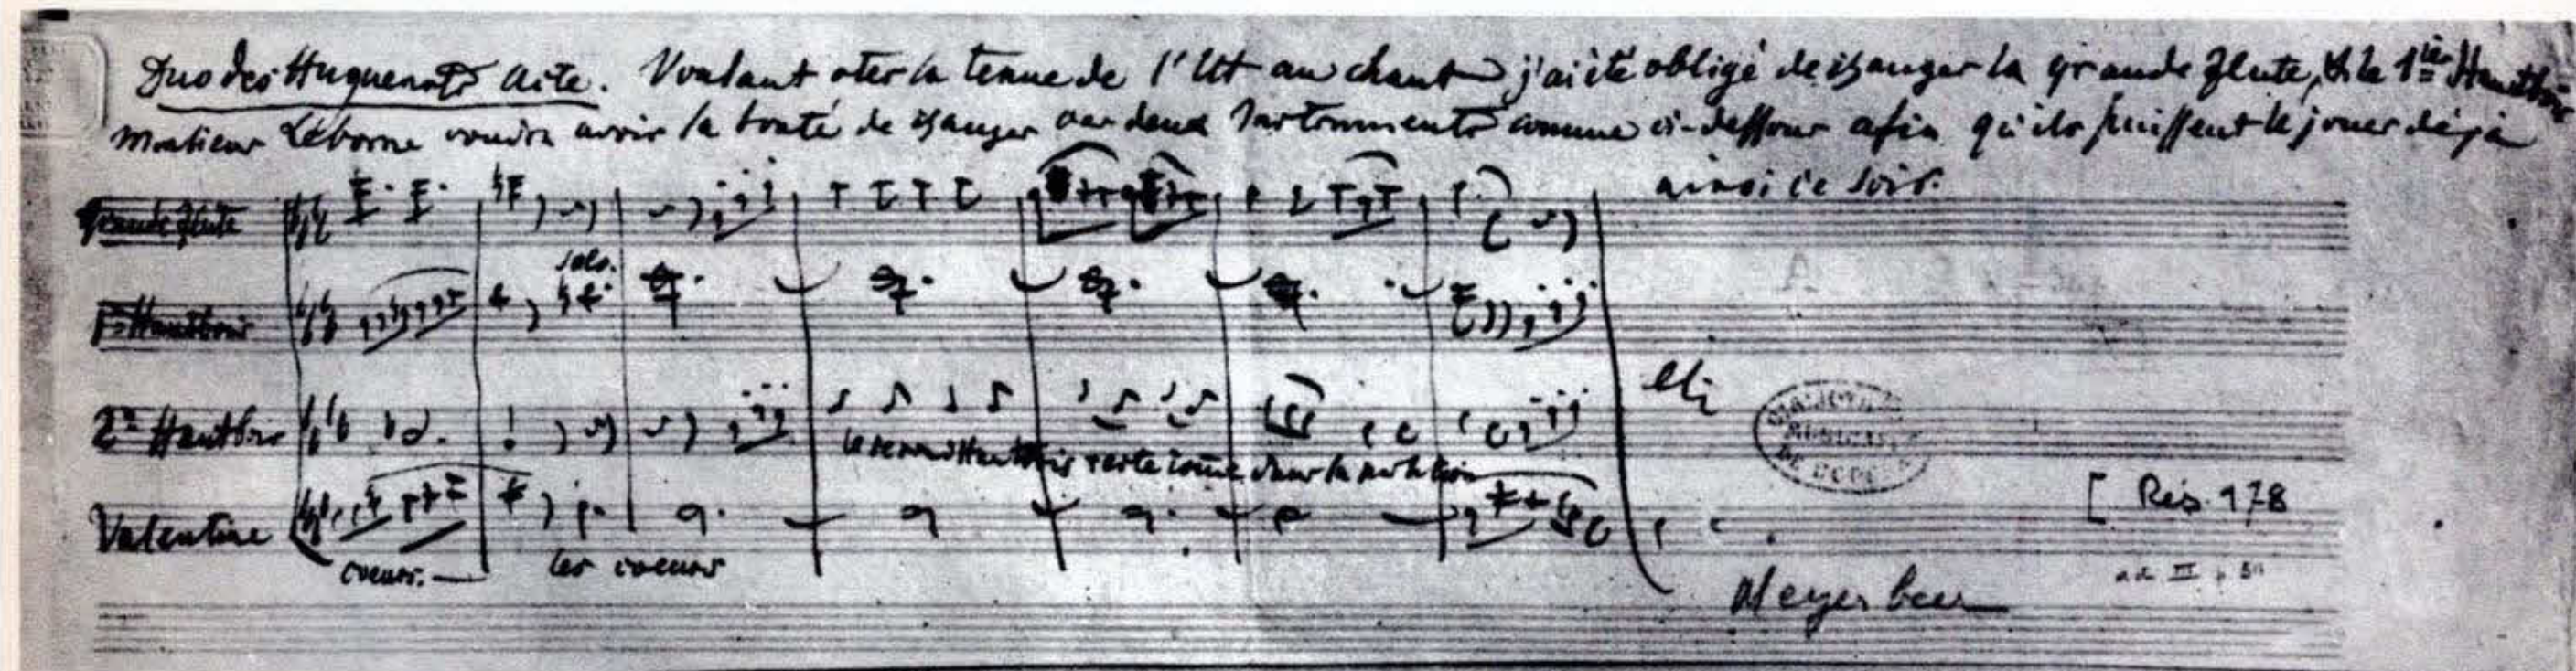 Duo des Huguenots Acte. Voulant oter la tenue de l'Ut au chant j'ai été obligé de changer la grande flute, & le 1ier Hautbois
Monsieur Leborne voudra avoir la bonté de changer ces deux Instruments comme ci-dessous afin qu'ils puissent le jouer déja
ainsi ce soir.
Grande flute
solo.
1er Hautbois
2d Hautbois
le second Hautbois reste comme dans la partition
Valentine
coeurs.
les coeurs
[ Rés. 178
Meyerbeer